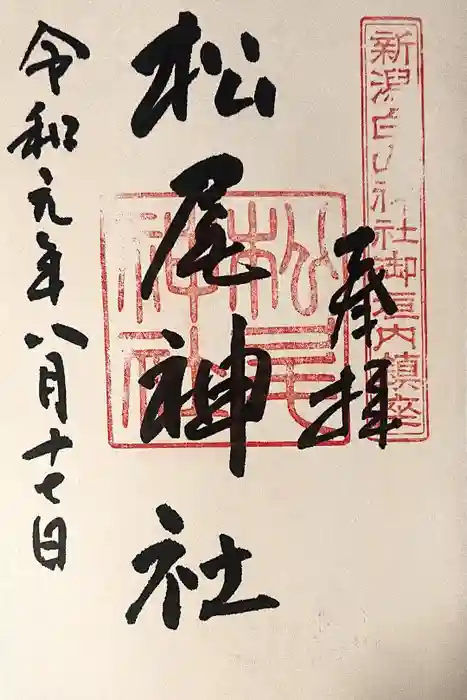 新潟白山神社御垣内鎮座
奉拝
松尾神社
松尾神社
令和元年八月十七日